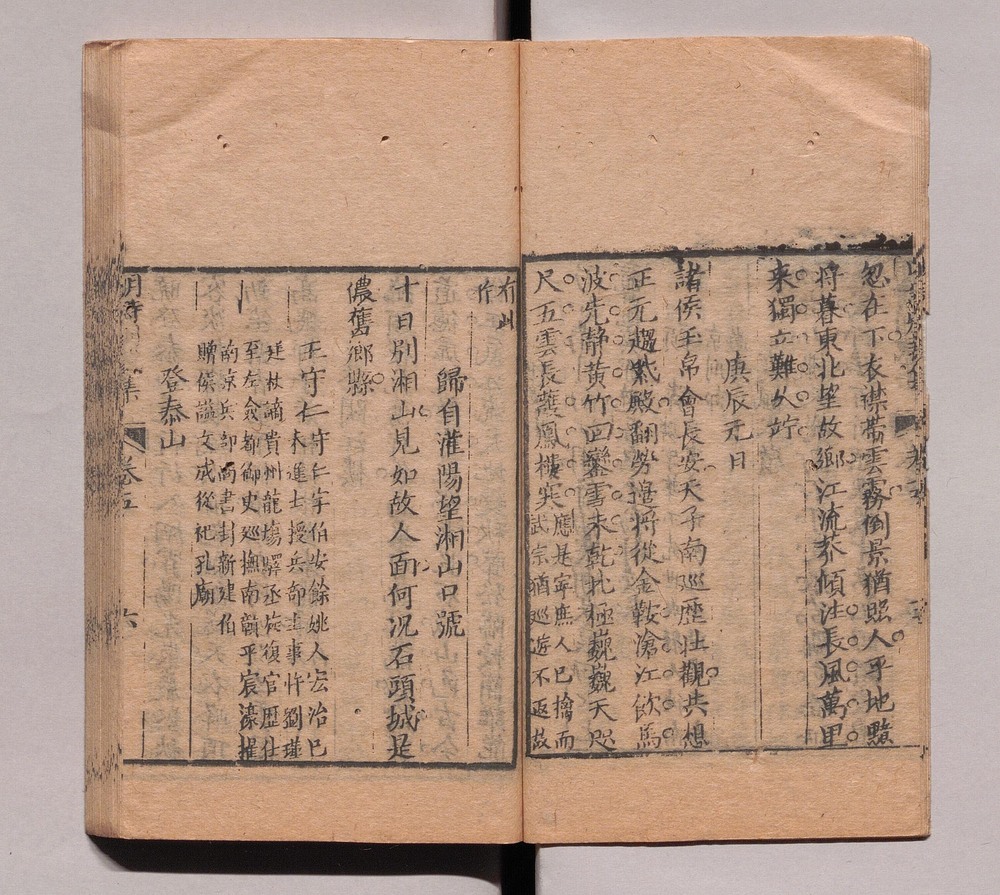 忽在下衣襟帶雲霧倒景猶照人平地黯
将暮東北望故鄉江流莽傾注長風萬里
来獨立難久竚
庚辰元日
諸侯玉帛會長安天子南巡歷壮觀共想
正元趨紫殿翻勞邊将從金鞍滄江飲馬
波先静黄竹回鑾雪未乾北極巍巍天咫
尺五雲長護鳳樓寒應是寧庶人已擒而
武宗猶巡遊不返故
有此
作
歸自淮陽望湘山口號
十日別湘山見如故人面何况石頭城是
儂舊鄉縣
王守仁守仁字伯安餘姚人宏治己
未進士授兵部主事忤劉瑾
廷杖謫貴州龍塲驛丞旋復官歷仕
至左僉都御史廵撫南贛平宸濠擢
南京兵部尚書封新建伯
贈侯謚文成從祀孔廟
登泰山
明詩 集 卷五 六